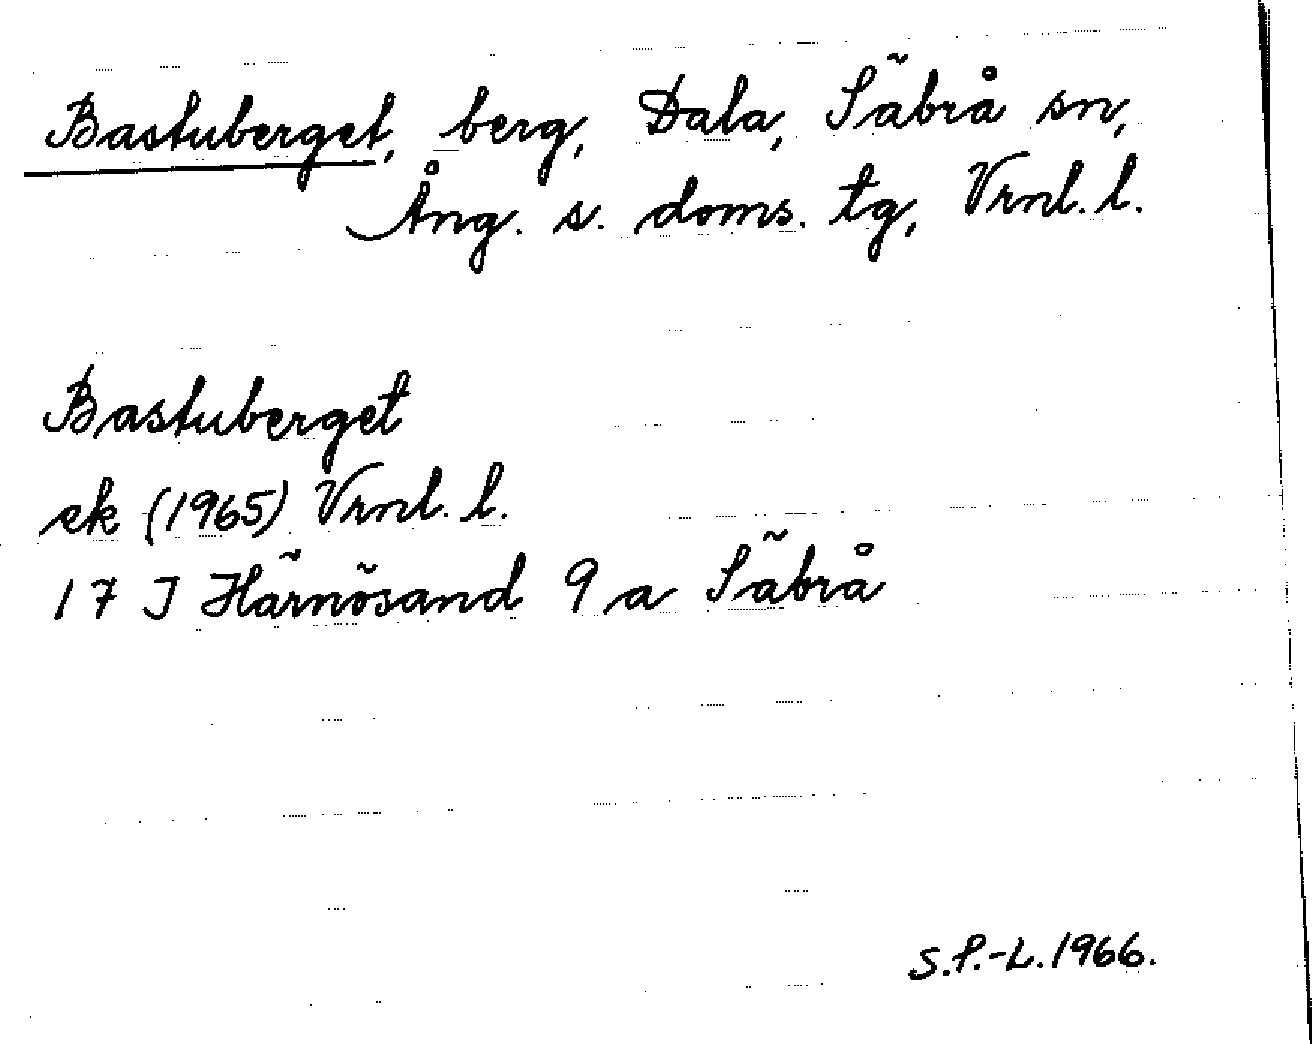 Bastuberget, berg, Dala, Säbrå sn,
Ång. s. doms. tg, Vrnl. l.
Bastuberget
ek (1965) Vrnl. l.
17 J Härnösand 9 a Säbrå
S.P.-L. 1966.